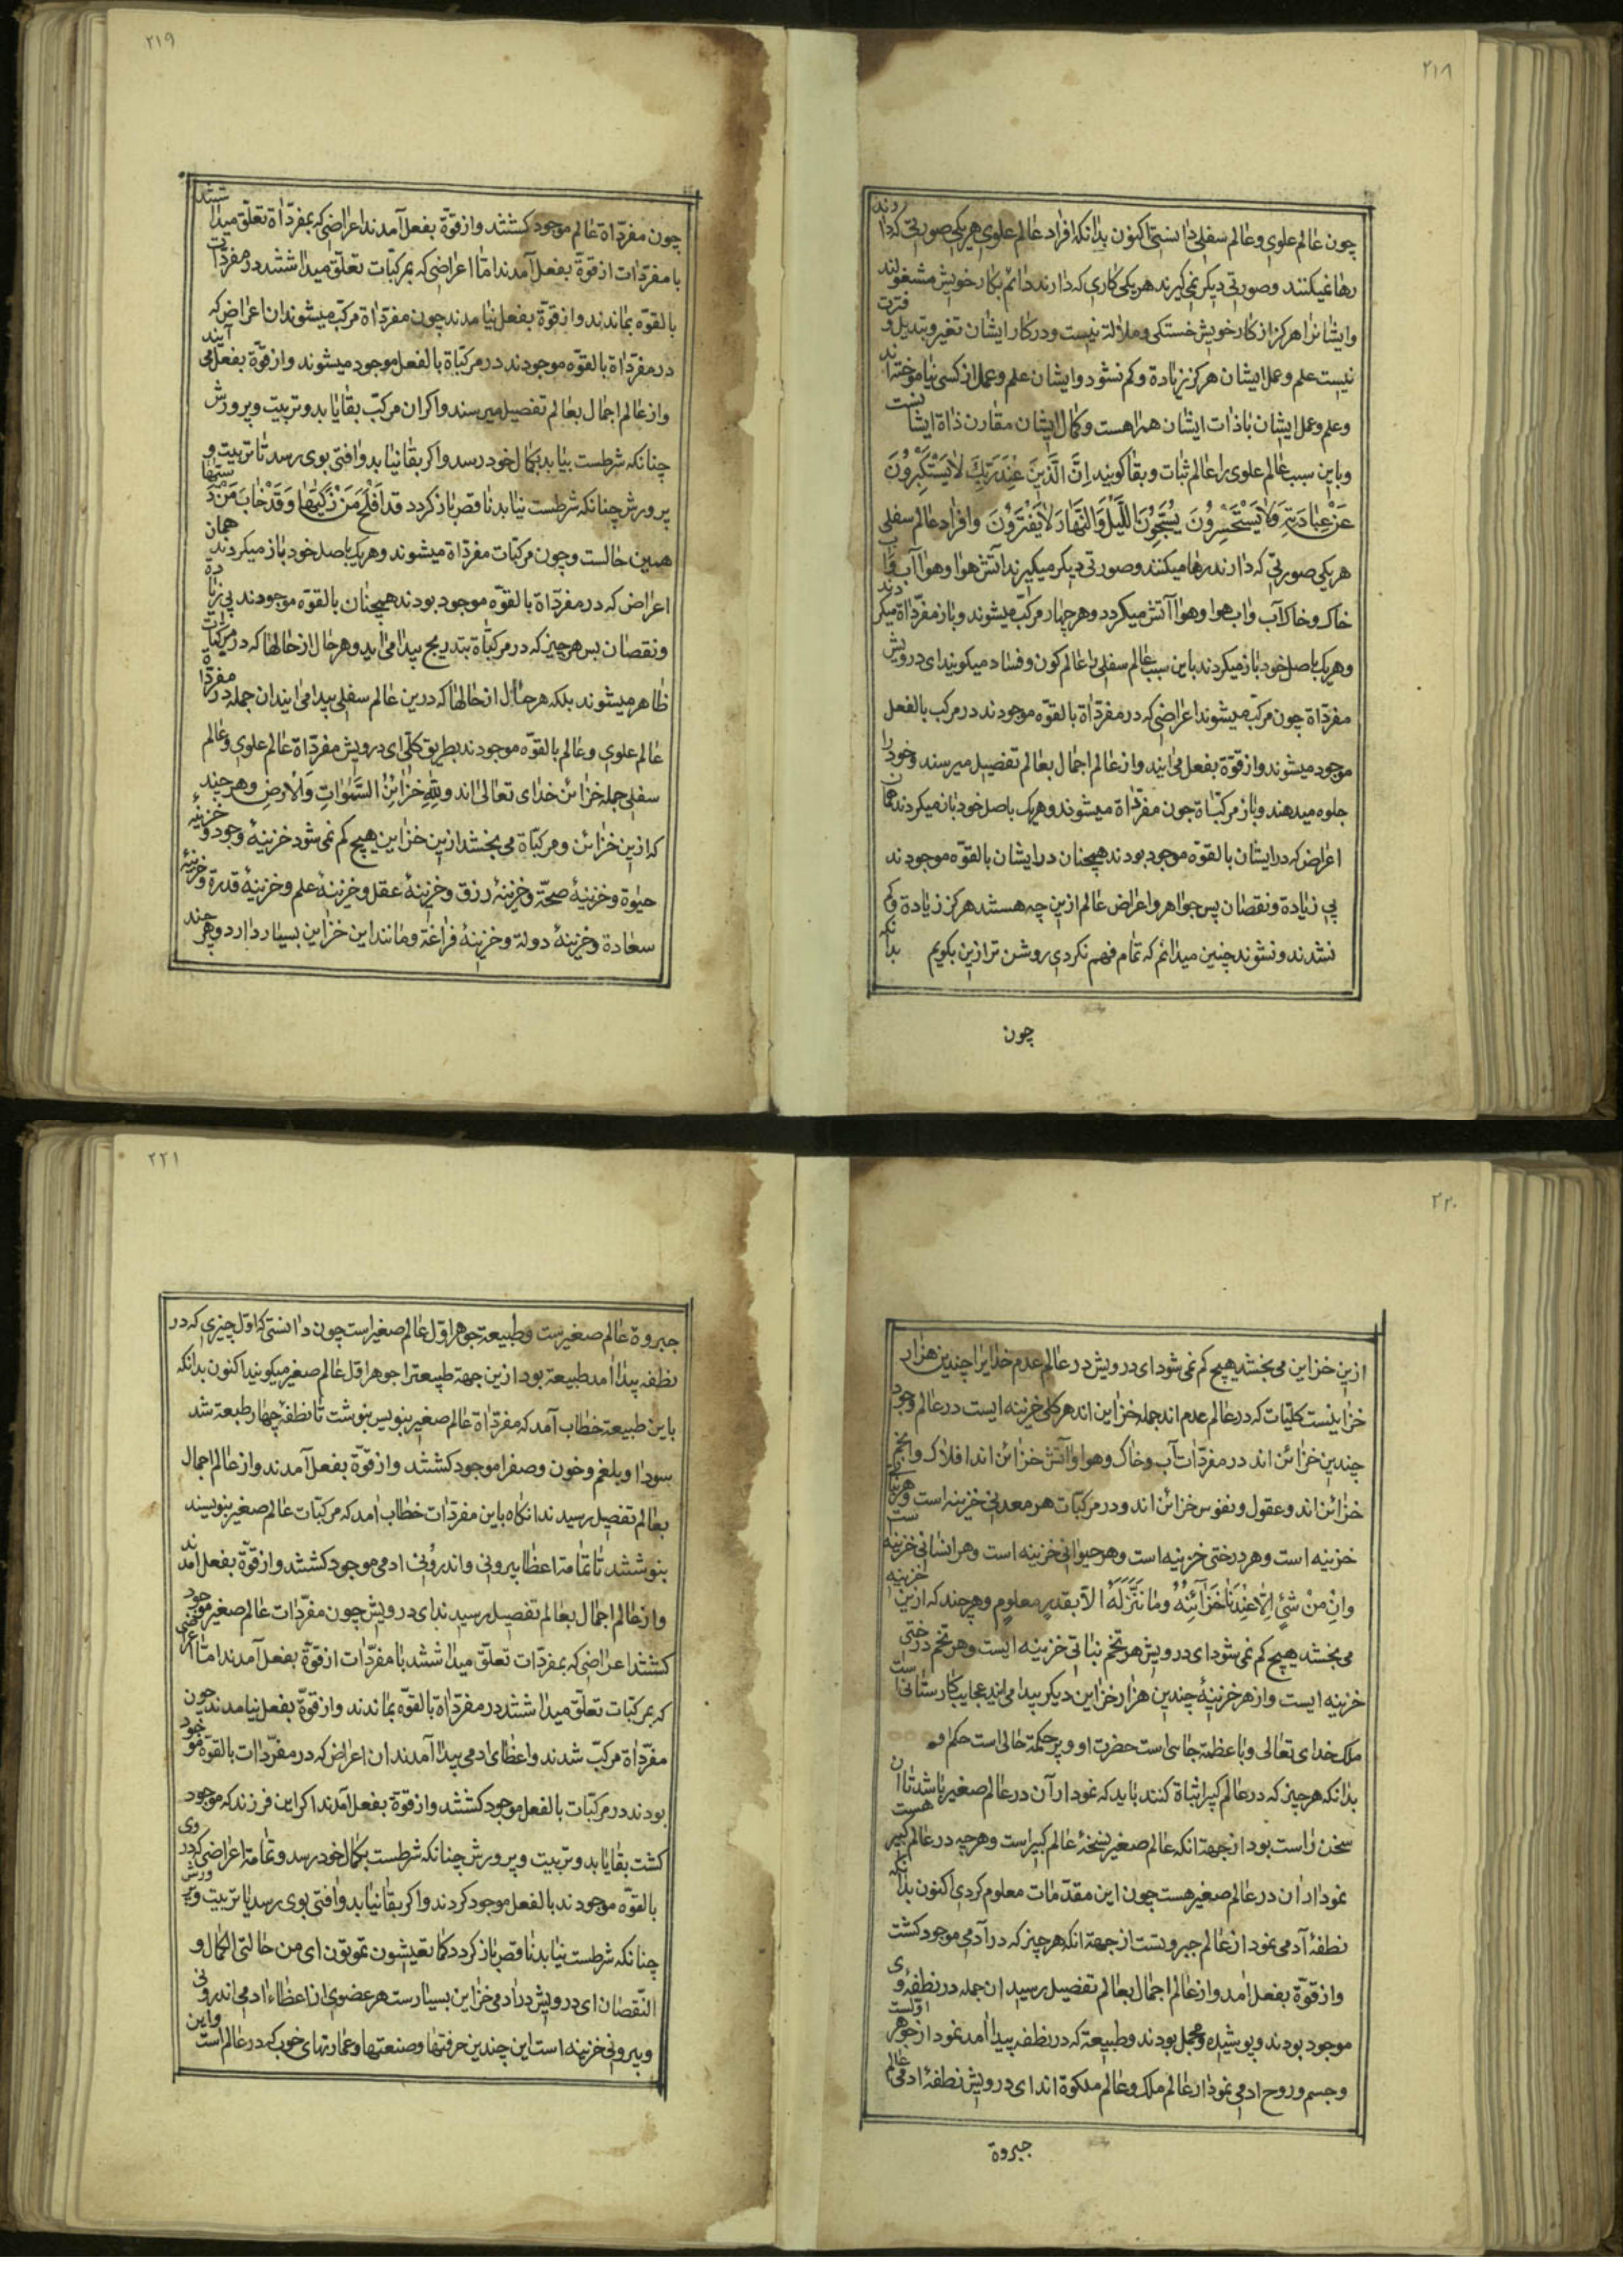 ٢١٨
چون عالم علوی و عالم سفلی دانستی اکنون بدانکه افراد عالم علوی هر یکی صورتی که دارند
رها نمیکنند و صورتی دیکر نمی کیرند هر یکی کاری که دارند دائم بکار خویش مشغولند
و ایشانرا هرکز از کار خویش خستکی و ملالة نیست و در کار ایشان تغیر و تبدیل و فترت
نیست علم و عمل ایشان هرکز زیادة و کم نشود و ایشان علم و عمل از کسی نیاموخته اند
و علم و عمل ایشان با ذات ایشان همراهست و کمال ایشان مقارن ذاة ایشانست
و باین سبب عالم علوی را عالم ثبات و بقا کویند اِنَّ الَّذینَ عِنْدَ رَبِّكَ لا یَسْتَكْبِرُونَ
عَنْ عِبادَتِهِ وَلا یَسْتَحْسِرُونَ یُسَبِّحُونَ اللَّیْلَ وَالنَّهارَ لا یَفْتَرُونَ و افراد عالم سفلی
هر یکی صورتی که دارند رها میکنند و صورتی دیکر میکیرند آتش هوا و هوا آب و آب
خاک و خاک آب و اب هوا و هوا آتش میکردد و هر چهار مرکّب میشوند و باز مفرّداة میکردند
و هر یک باصل خود باز میکردند باین سبب عالم سفلی را عالم کون و فساد میکویند ای درویش
مفرّداة چون مرکّب میشوند اعراضی که در مفرّداة بالقوّه موجودند در مرکب بالفعل
موجود میشوند و از قوّة بفعل می ایند و از عالم اجمال بعالم تفصیل میرسند و خود را
جلوه میدهند و باز مرکبّاة چون مفرّداة میشوند و هر یک باصل خود باز میکردند همان
اعراض که در ایشان بالقوّه موجود بودند همچنان در ایشان بالقوّه موجودند
بی زیادة و نقصان پس جواهر و اعراض عالم ازین چه هستند هرکز زیادة و کم
نشدند و نشوند چنین میدانم که تمام فهم نکردی روشن تر ازین بکویم بدانکه
چون
٢١٩
چون مفرّداة عالم موجود کشتند و از قوّة بفعل آمدند اعراضی که بمفرّداة تعلّق میداشتند
با مفرّدات از قوّة بفعل آمدند امّا اعراضی که بمرکبّات تعلّق میداشتند در مفردات
بالقوّه بماندند و از قوّة بفعل نیامدند چون مفرّداة مرکب میشوند ان اعراض که
در مفرّداة بالقوّه موجودند در مرکبّاة بالفعل موجود میشوند و از قوّة بفعل می آیند
و از عالم اجمال بعالم تفصیل میرسند و اکر ان مرکب بقا یابد و تربیت و پرورش
چنانکه شرطست بیابد بکمال خود رسد و اکر بقا نیابد و افتی بوی رسد تا تربیت و
پرورش چنانکه شرطست نیابد ناقص باز کردد قد اَفْلَحَ مَنْ زَکّیٰها وَقَدْ خابَ مَنْ دَسّٰیها
همین حالست و چون مرکبّات مفرّداة میشوند و هر یک باصل خود باز میکردند همان
اعراض که در مفرّداة بالقوّه موجود بودند همچنان بالقوّه موجودند بی زیادة
و نقصان بس هر چیز که در مرکبّاة بتدریج پیدا می اید و هر حال از حالها که در مرکبات
ظاهر میشوند بلکه هر حال از حالها که درین عالم سفلی پیدا می ایند ان جمله در مفرداة
عالم علوی و عالم بالقوّه موجودند بطریق کلّی ای درویش مفرّداة عالم علوی و عالم
سفلی جمله خزائن خدای تعالی اند وَلِلّٰهِ خَزائِنُ السَّمٰواتِ وَالْاَرْضِ و هر چند
که ازین خزائن و مرکبّاة می بخشد ازین خزاین هیچ کم نمی شود خزینهٔ وجود و خزینهٔ
حیٰوة و خزینهٔ صحّة و خزینهٔ رزق و خزینهٔ عقل و خزینهٔ علم و خزینهٔ قدرة و خزینهٔ
سعادة و خزینهٔ دولة و خزینهٔ فراغة و مانند این خزاین بسیار دارد و هر چند
٢٢٠
ازین خزاین می بخشد هیچ کم نمی شود ای درویش در عالم عدم خدایرا چندین هزار
خزاینست کلیّات که در عالم عدم اند جمله خزاین اند هر کلی خزینه ایست در عالم وجود
چندین خزائن اند در مفرّدات آب و خاک و هوا و آتش خزائن اند افلاک و انجم
خزائن اند و عقول و نفوس خزائن اند و در مرکبّات هر معدنی خزینه است و هر نباتی
خزینه است و هر درختی خزینه است و هر حیوانی خزینه است و هر انسانی خزینه ست
وَاِنْ مِنْ شَیْءٍ اِلّا عِنْدَنا خَزآئِنُهُ وَما نُنَزِّلُهُ اِلّا بِقَدَرٍ مَعلومٍ و هر چند که ازین خزینه
می بخشد هیچ کم نمی شود ای درویش هر تخم نباتی خزینه ایست و هر تخم درختی
خزینه ایست و از هر خزینهٔ چندین هزار خزاین دیکر پیدا می ایند عجایب کارستانی است
ملک خدای تعالی و با عظمة جائی است حضرت او و پر حکمة حالی است حکم او
بدانکه هر چیز که در عالم کبیر اثباة کنند باید که نمودار آن در عالم صغیر باشد تا ان
سخن راست بود از جهة انکه عالم صغیر نسخهٔ عالم کبیر است و هر چه در عالم کبیر هست
نمودار ان در عالم صغیر هست چون این مقدّمات معلوم کردی اکنون بدانکه
نطفهٔ آدمی نمودار عالم جبروتست از جهة انکه هر چیز که در آدمی موجود کشت
و از قوّة بفعل آمد و از عالم اجمال بعالم تفصیل رسید ان جمله در نطفهٔ وی
موجود بودند و پوشیده و مجمل بودند و طبیعة که در نطفه پیدا آمد نمودار جوهر اوّلست
و جسم و روح ادمی نمودار عالم ملک و عالم ملکوة اند ای درویش نطفهٔ ادمی عالم
جبروة
٢٢١
جبروة عالم صغیرست و طبیعة جوهر اوّل عالم صغیر است چون دانستی که اوّل چیزی که در
نطفه پیدا امد طبیعة بود ازین جهة طبیعترا جوهر اوّل عالم صغیر میکویند اکنون بدانکه
باین طبیعة خطاب آمد که مفرّداة عالم صغیر بنویس بنوشت تا نطفه چهار طبیعة شد
سودا و بلغم و خون و صفرا موجود کشتند و از قوّة بفعل آمدند و از عالم اجمال
بعالم تفصیل رسیدند انکاه باین مفرّدات خطاب آمد که مرکبّات عالم صغیر بنویسند
بنوشتند تا تمامة اعظا بیرونی و اندرونی ادمی موجود کشتند و از قوّة بفعل امدند
و از عالم اجمال بعالم تفصیل رسیدند ای درویش چون مفرّدات عالم صغیر موجود
کشتند اعراضی که بمفرّدات تعلّق میداشتند با مفرّدات از قوّة بفعل آمدند امّا اعراضی
که بمرکبّات تعلّق میداشتند در مفرّداة بالقوّه بماندند و از قوّة بفعل نیامدند چون
مفرّداة مرکّب شدند و اعظای ادمی پیدا آمدند ان اعراض که در مفرّدات بالقوّه موجود
بودند در مرکبّات بالفعل موجود کشتند و از قوّة بفعل آمدند اکر این فرزند که موجود
کشت بقا یابد و تربیت و پرورش چنانکه شرطست بکمال خود رسد و تمامة اعراضی که در وی
بالقوّه موجودند بالفعل موجود کردند و اکر بقا نیابد و افتی بوی رسد یا تربیت و پرورش
چنانکه شرطست نیابد ناقص باز کردد کما تعیشون تموتون ای من حالتی الکمال و
النّقصان ای درویش در ادمی خزاین بسیارست هر عضوی از اعظاء ادمی اندرونی
و بیرونی خزینه است این چندین حرفتها و صنعتها و عمارتهای خوب که در عالم است و این